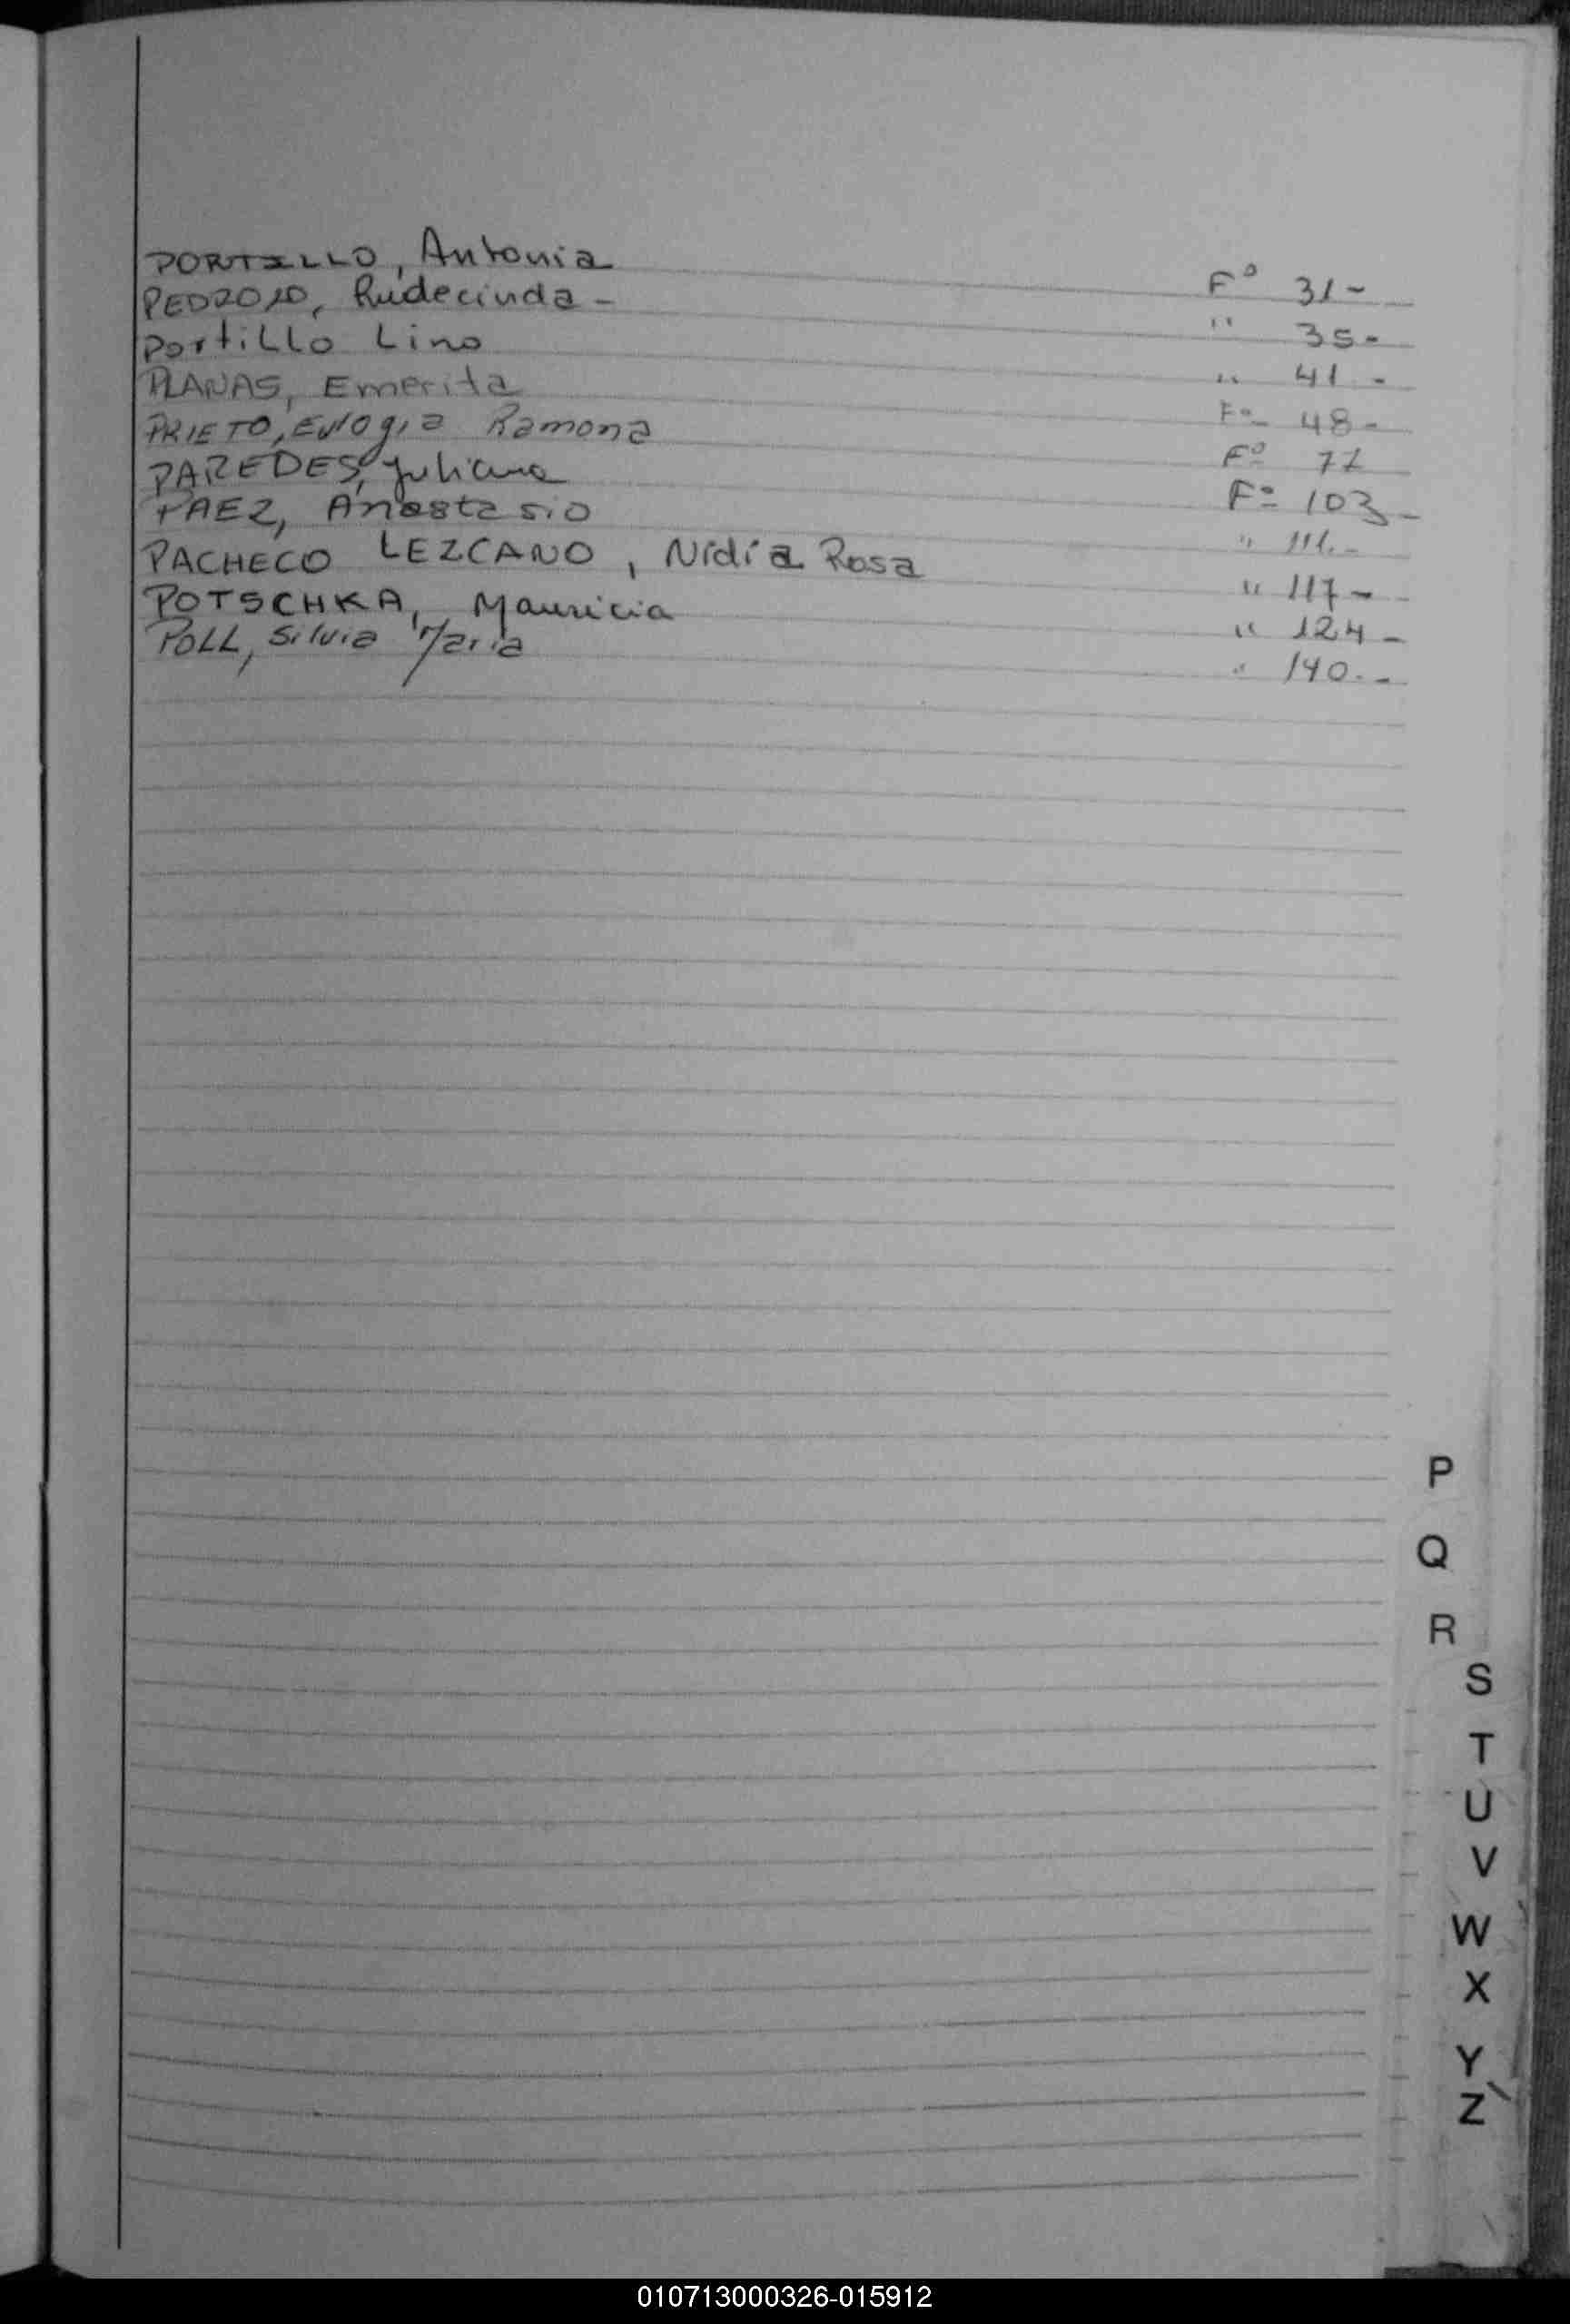 PORTILLO, Antonia F° 31-
PEDROZO, Rudecinda - " 35-
Portillo Lino " 41 -
PLANAS, Emerita Fº 48-
PRIETO, Eulogia Ramona Fº 77
PAREDES, Juliana Fº 103-
PAEZ, Anastasio " 111.-
PACHECO LEZCANO, Nídia Rosa " 117-
POTSCHKA, Mauricia " 124-
POLL, Silvia Maria " 140.-
P
Q
R
S
T
U
V
W
X
Y
Z
010713000326-015912